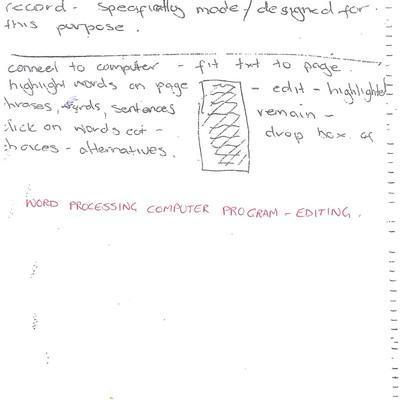 record - specifically made/designed for
this purpose.
connect to computer - fit txt to page.
highlight words on page - edit - highlighted
phrases, words, sentences remain -
click on words etc - drop box of
choices - alternatives.
WORD PROCESSING COMPUTER PROGRAM - EDITING.